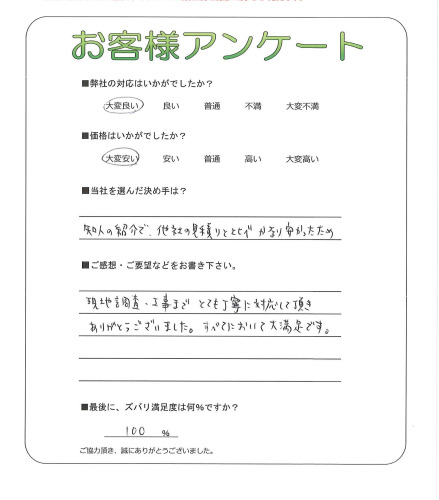 お客様アンケート
■弊社の対応はいかがでしたか？
大変良い 良い 普通 不満 大変不満
■価格はいかがでしたか？
大変安い 安い 普通 高い 大変高い
■当社を選んだ決め手は？
知人の紹介で、他社の見積りとくらべ かなり安かったため
■ご感想・ご要望などをお書き下さい。
現地調査・工事まで とても丁寧に対応して頂き
ありがとうございました。すべてにおいて大満足です。
■最後に、ズバリ満足度は何％ですか？
100 %
ご協力頂き、誠にありがとうございました。